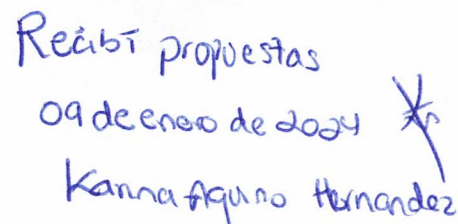 Recibí propuestas
09 de enero de 2024
Karina Aquino Hernandez